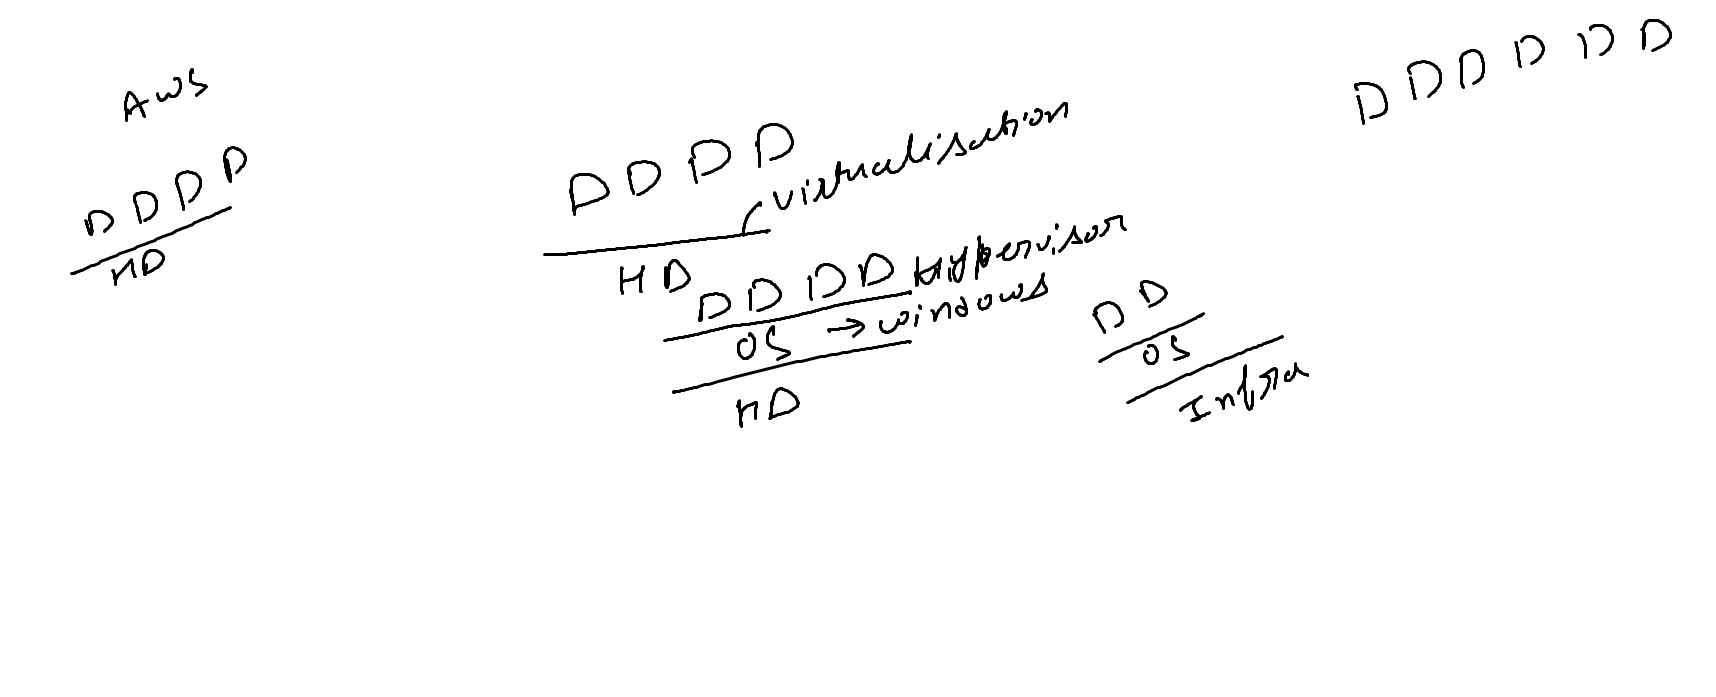 AWS
D D D D
HD
D D D D
virtualisation
HD
D D D D Hypervisor
OS → windows
HD
D D
OS
Infra
D D D D D D